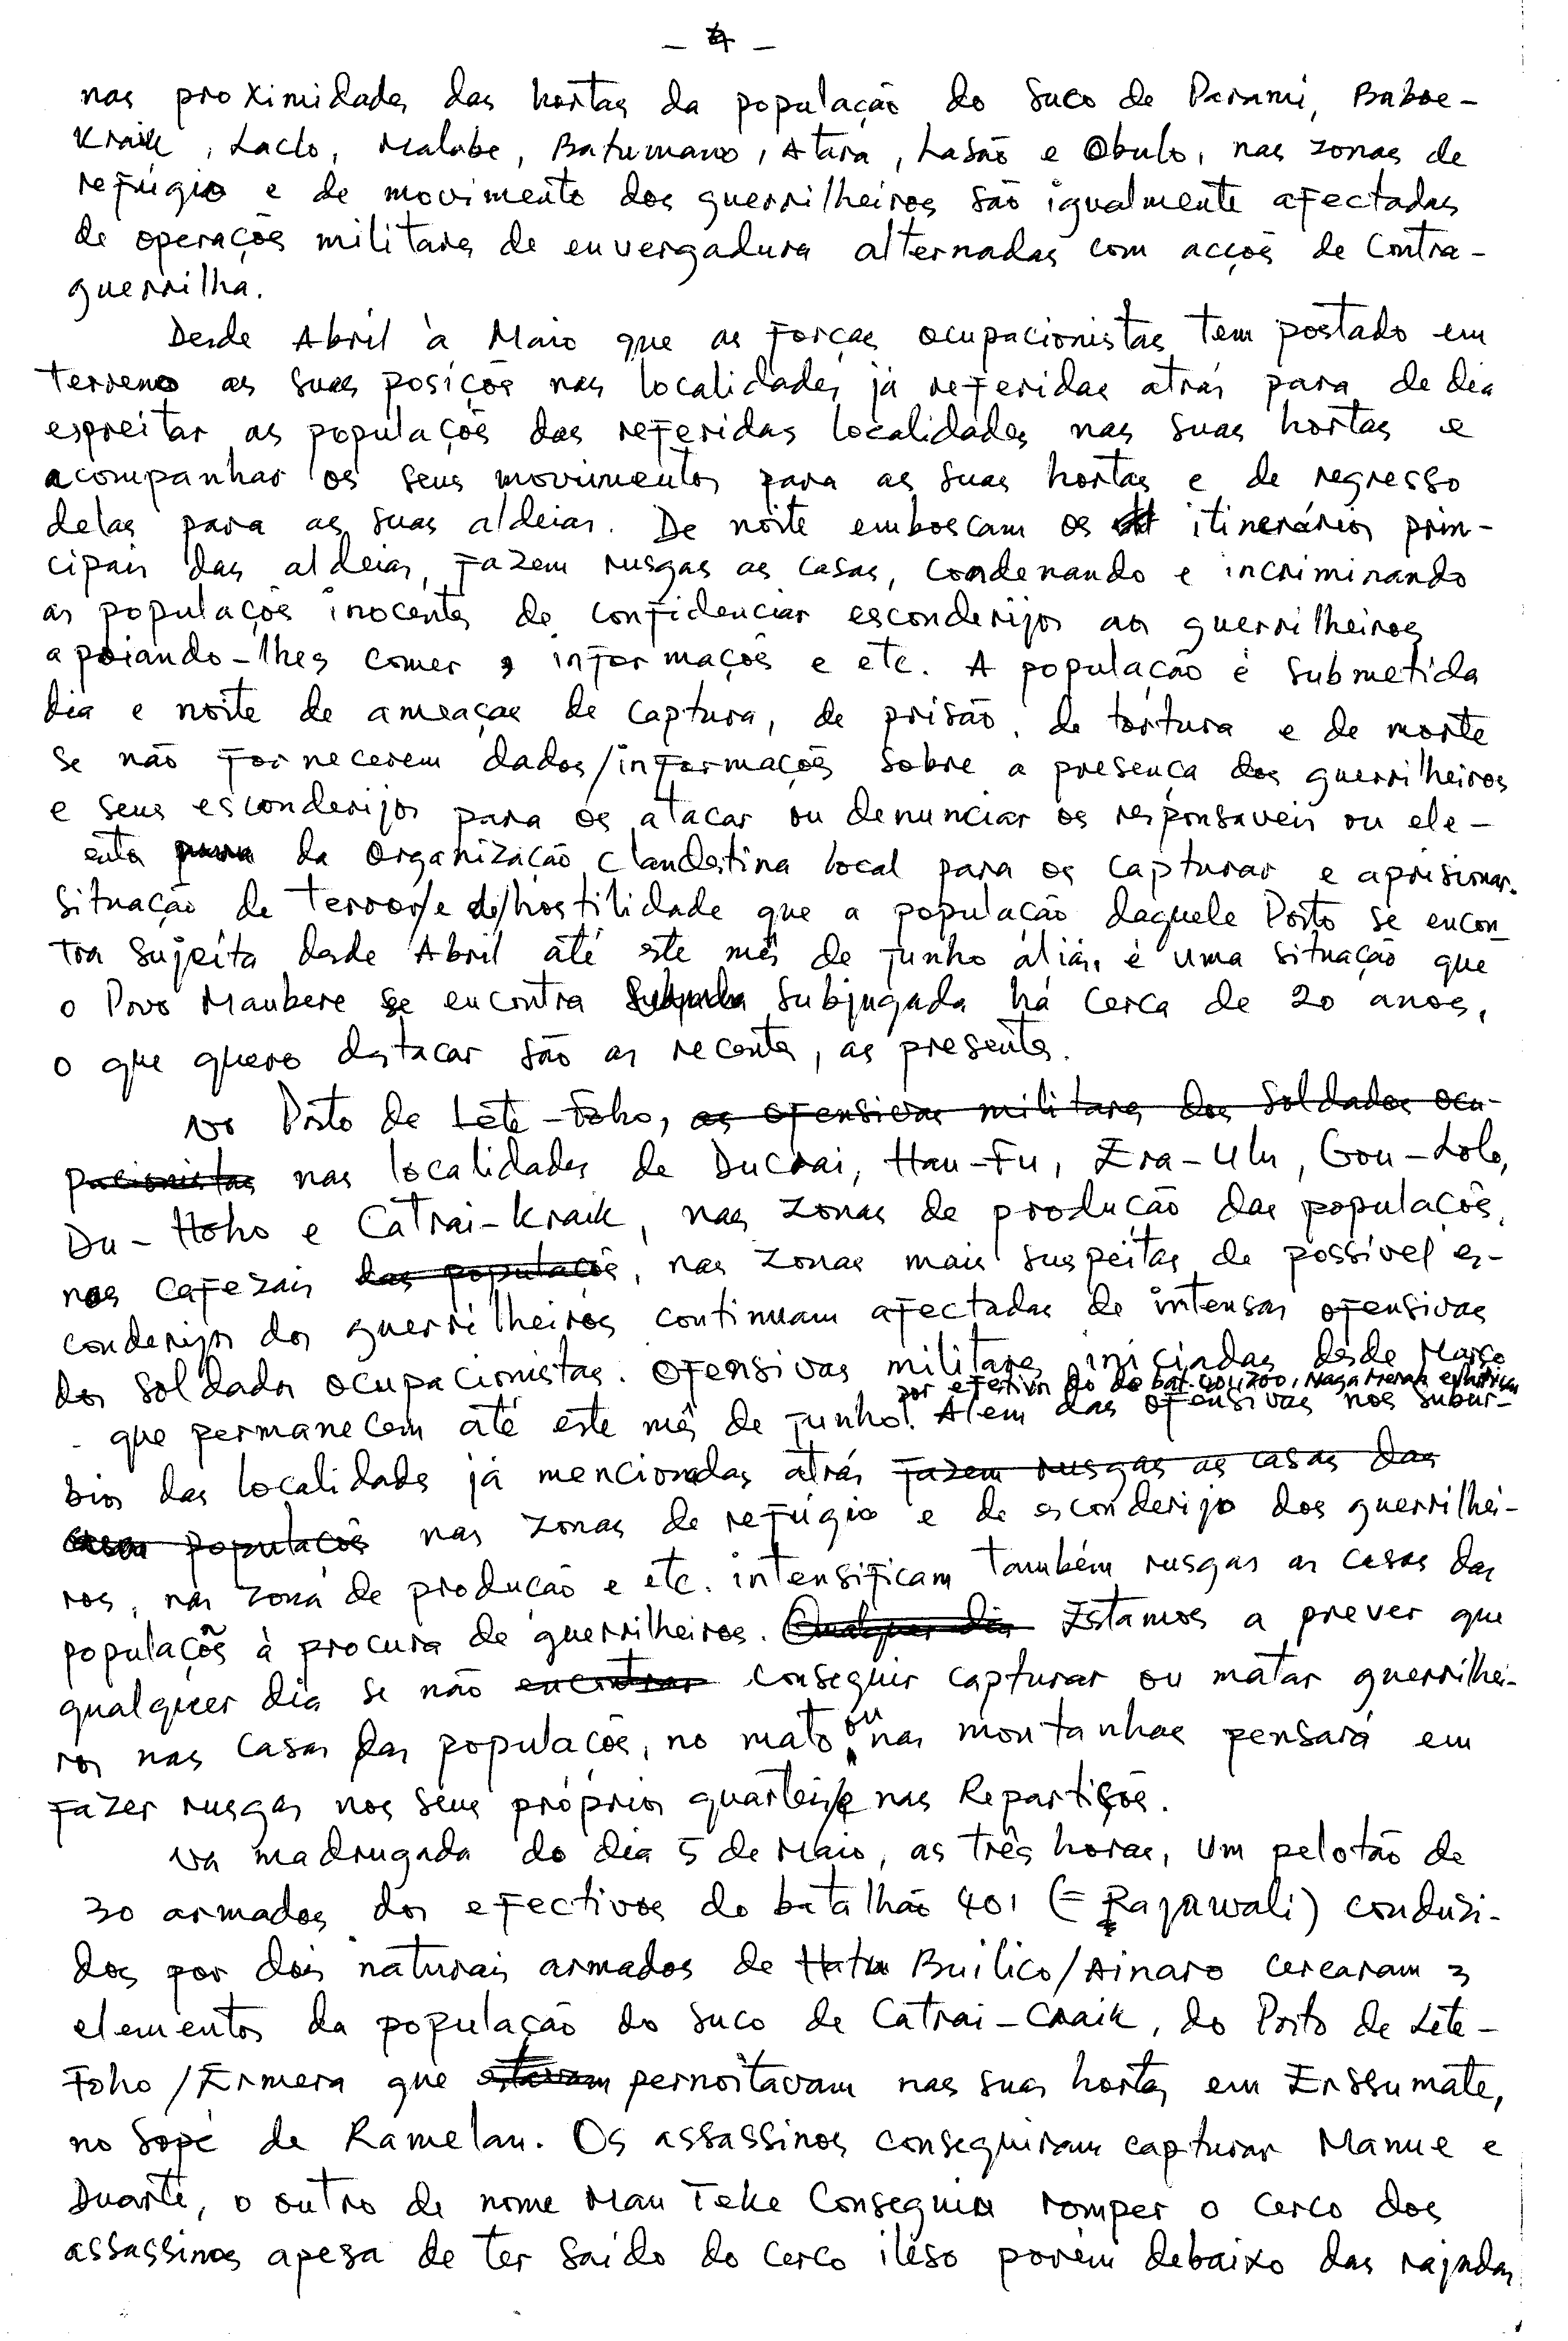 - 4 -
nas proximidades das hortas da população do suco de Parami, Baboe-
Kraik, Laclo, Malabe, Batumano, Atara, Lasão e Obulo, nas zonas de
refúgio e de movimento dos guerrilheiros são igualmente afectadas
de operações militares de envergadura alternadas com acções de contra-
guerrilha.
Desde Abril à Maio que as forças ocupacionistas tem postado em
terreno as suas posições nas localidades já referidas atrás para de dia
espreitar as populações das referidas localidades nas suas hortas e
acompanhar os seus movimentos para as suas hortas e de regresso
delas para as suas aldeias. De noite emboscam os itinerários prin-
cipais das aldeias, fazem rusgas as casas, condenando e incriminando
as populações inocentes de confidenciar esconderijos aos guerrilheiros
apoiando-lhes comer, informações e etc. A população é submetida
dia e noite de ameaças de captura, de prisão, de tortura e de morte
se não fornecerem dados/informações sobre a presença dos guerrilheiros
e seus esconderijos para os atacar ou denunciar os responsaveis ou ele-
entos para da organização clandestina local para os capturar e aprisionar.
Situação de terror/e de/hostilidade que a população daquele Posto se encon-
tra sujeita desde Abril até este mês de junho aliás, é uma situação que
o Povo Maubere se encontra subjugada há cerca de 20 anos,
o que quero destacar são as recentes, as presentes.
No Posto de Lete-Foho, as ofensivas militares dos soldados ocu-
pacionistas nas localidades de Ducrai, Hau-Fu, Era-Ulu, Gou-Lolo,
Du-Hoho e Catrai-Kraik, nas zonas de produção das populações,
nos cafezais das populações, nas zonas mais suspeitas de possível es-
conderijos dos guerrilheiros continuam afectadas de intensas ofensivas
dos soldados ocupacionistas. Ofensivas militares iniciadas desde Março
por efectivos do de bat. 401, 700, Naga Merah
que permanecem até este mês de junho. Além das ofensivas nos subúr-
bios das localidades já mencionadas atrás fazem rusgas as casas das
populações nas zonas de refúgio e de esconderijo dos guerrilhei-
ros, nas zona de produção e etc. intensificam também rusgas as casas das
populações à procura de guerrilheiros. Qualquer dia Estamos a prever que
qualquer dia se não encontrar conseguir capturar ou matar guerrilhei-
ros nas casas das populações, no mato ou nas montanhas pensará em
fazer rusgas nos seus próprios quarteis/e nas Repartições.
Na madrugada do dia 5 de Maio, as três horas, um pelotão de
30 armados dos efectivos do batalhão 401 (= Rajawali) conduzi-
dos por dois naturais armados de Hatu Builico/Ainaro cercaram 3
elementos da população do suco de Catrai-Craik, do Posto de Lete-
Foho/Ermera que estavam pernoitavam nas suas hortas em Erssumate,
no sopé de Ramelau. Os assassinos conseguiram capturar Manue e
Duarte, o outro de nome Mau Teke conseguiu romper o cerco dos
assassinos apesa de ter saído do cerco ileso porém debaixo das rajadas